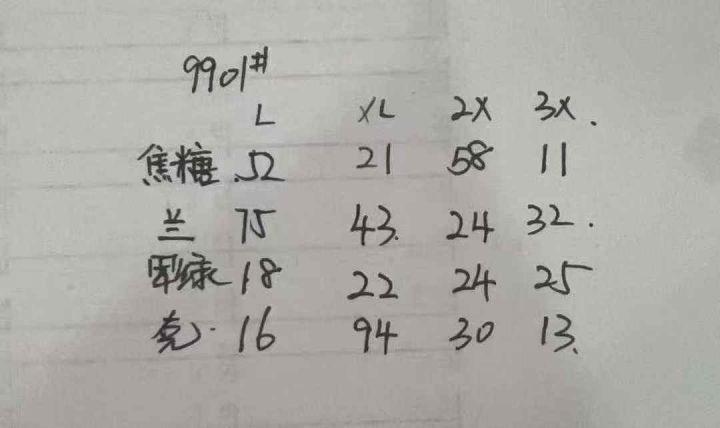 9901#
L XL 2X 3X.
焦糖 52 21 58 11
兰 75 43. 24 32.
军绿 18 22 24 25
克· 16 94 30 13.